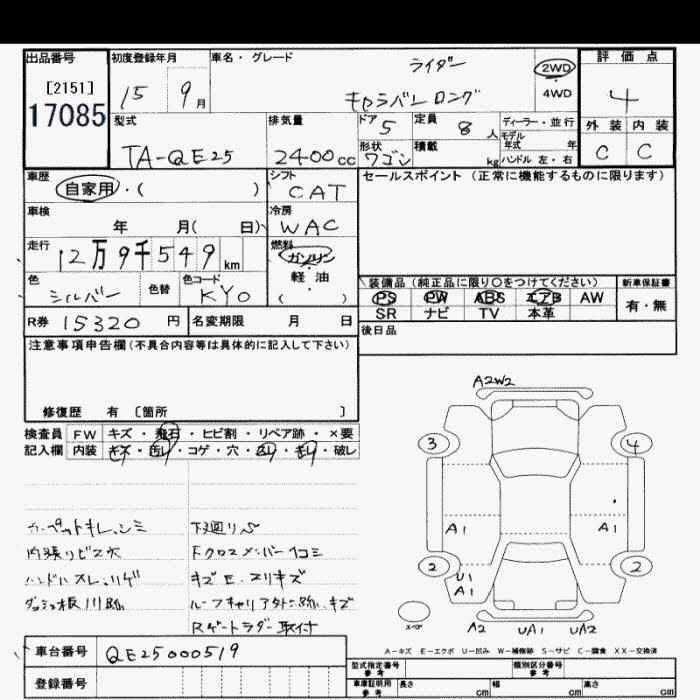 出品番号
[2151]
17085
初度登録年月
15 9月
車名・グレード
ライダー
キャラバン ロング
2WD
・
4WD
評価点
4
外装 内装
C C
型式
TA-QE25
排気量
2400cc
ドア
5
定員
8人
ディーラー・並行
モデル年式 年
形状
ワゴン
積載
kg
ハンドル 左・右
車歴
自家用・( )
シフト
CAT
セールスポイント (正常に機能するものに限ります)
車検
年 月( 日)
冷房
WAC
走行
12万9千549km
燃料
ガソリン
軽・油
( )
色
シルバー
色替
色コード
KY0
装備品 (純正品に限り○をつけてください)
PS PW ABS エアB AW
SR ナビ TV 本革
新車保証書
有・無
R券 15320 円
名変期限 月 日
後日品
注意事項申告欄(不具合内容等は具体的に記入して下さい)
修復歴 有 〔箇所 〕
検査員
記入欄
FW キズ・飛石・ヒビ割・リペア跡・×要
内装 キズ・汚れ・コゲ・穴・凹り・老り・破し
カーペットキレ、シミ
内張りビス穴
ハンドルスレ、ハゲ
下廻りS
キズE、スリキズ
Rゲートラダー取付
A2W2
3
4
A1
A1
2
2
U1
A1
スペア
A2 UA1 UA2
A-キズ E-エクボ U-凹み W-補修跡 S-サビ C-腐食 XX-交換済
車台番号 QE25000519
登録番号
型式指定番号
参考
類別区分番号
参考
車庫証明用
参考
長さ cm
幅 cm
高さ cm